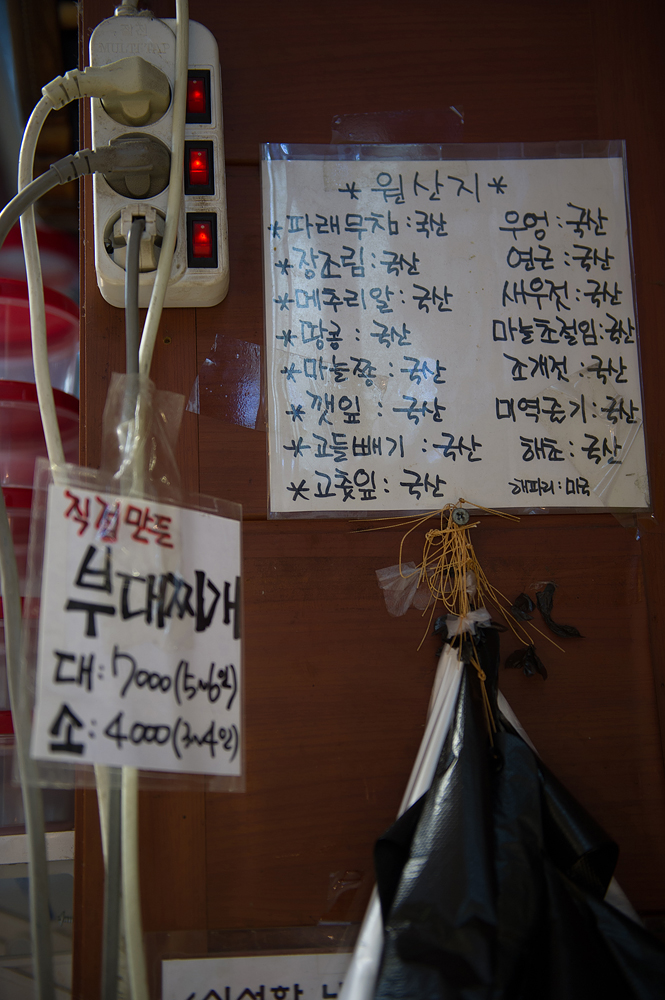 MULTI-TAP
*월산지*
*파래무침:국산
*장조림:국산
*메추리알:국산
*땅콩:국산
*마늘쫑:국산
*깻잎:국산
*고들빼기:국산
*고춧잎:국산
우엉:국산
연근:국산
새우젓:국산
마늘초절임:국산
조개젓:국산
미역줄기:국산
해초:국산
해파리:미국
직접만든
부대찌개
대:7000(5~6인)
소:4000(3~4인)